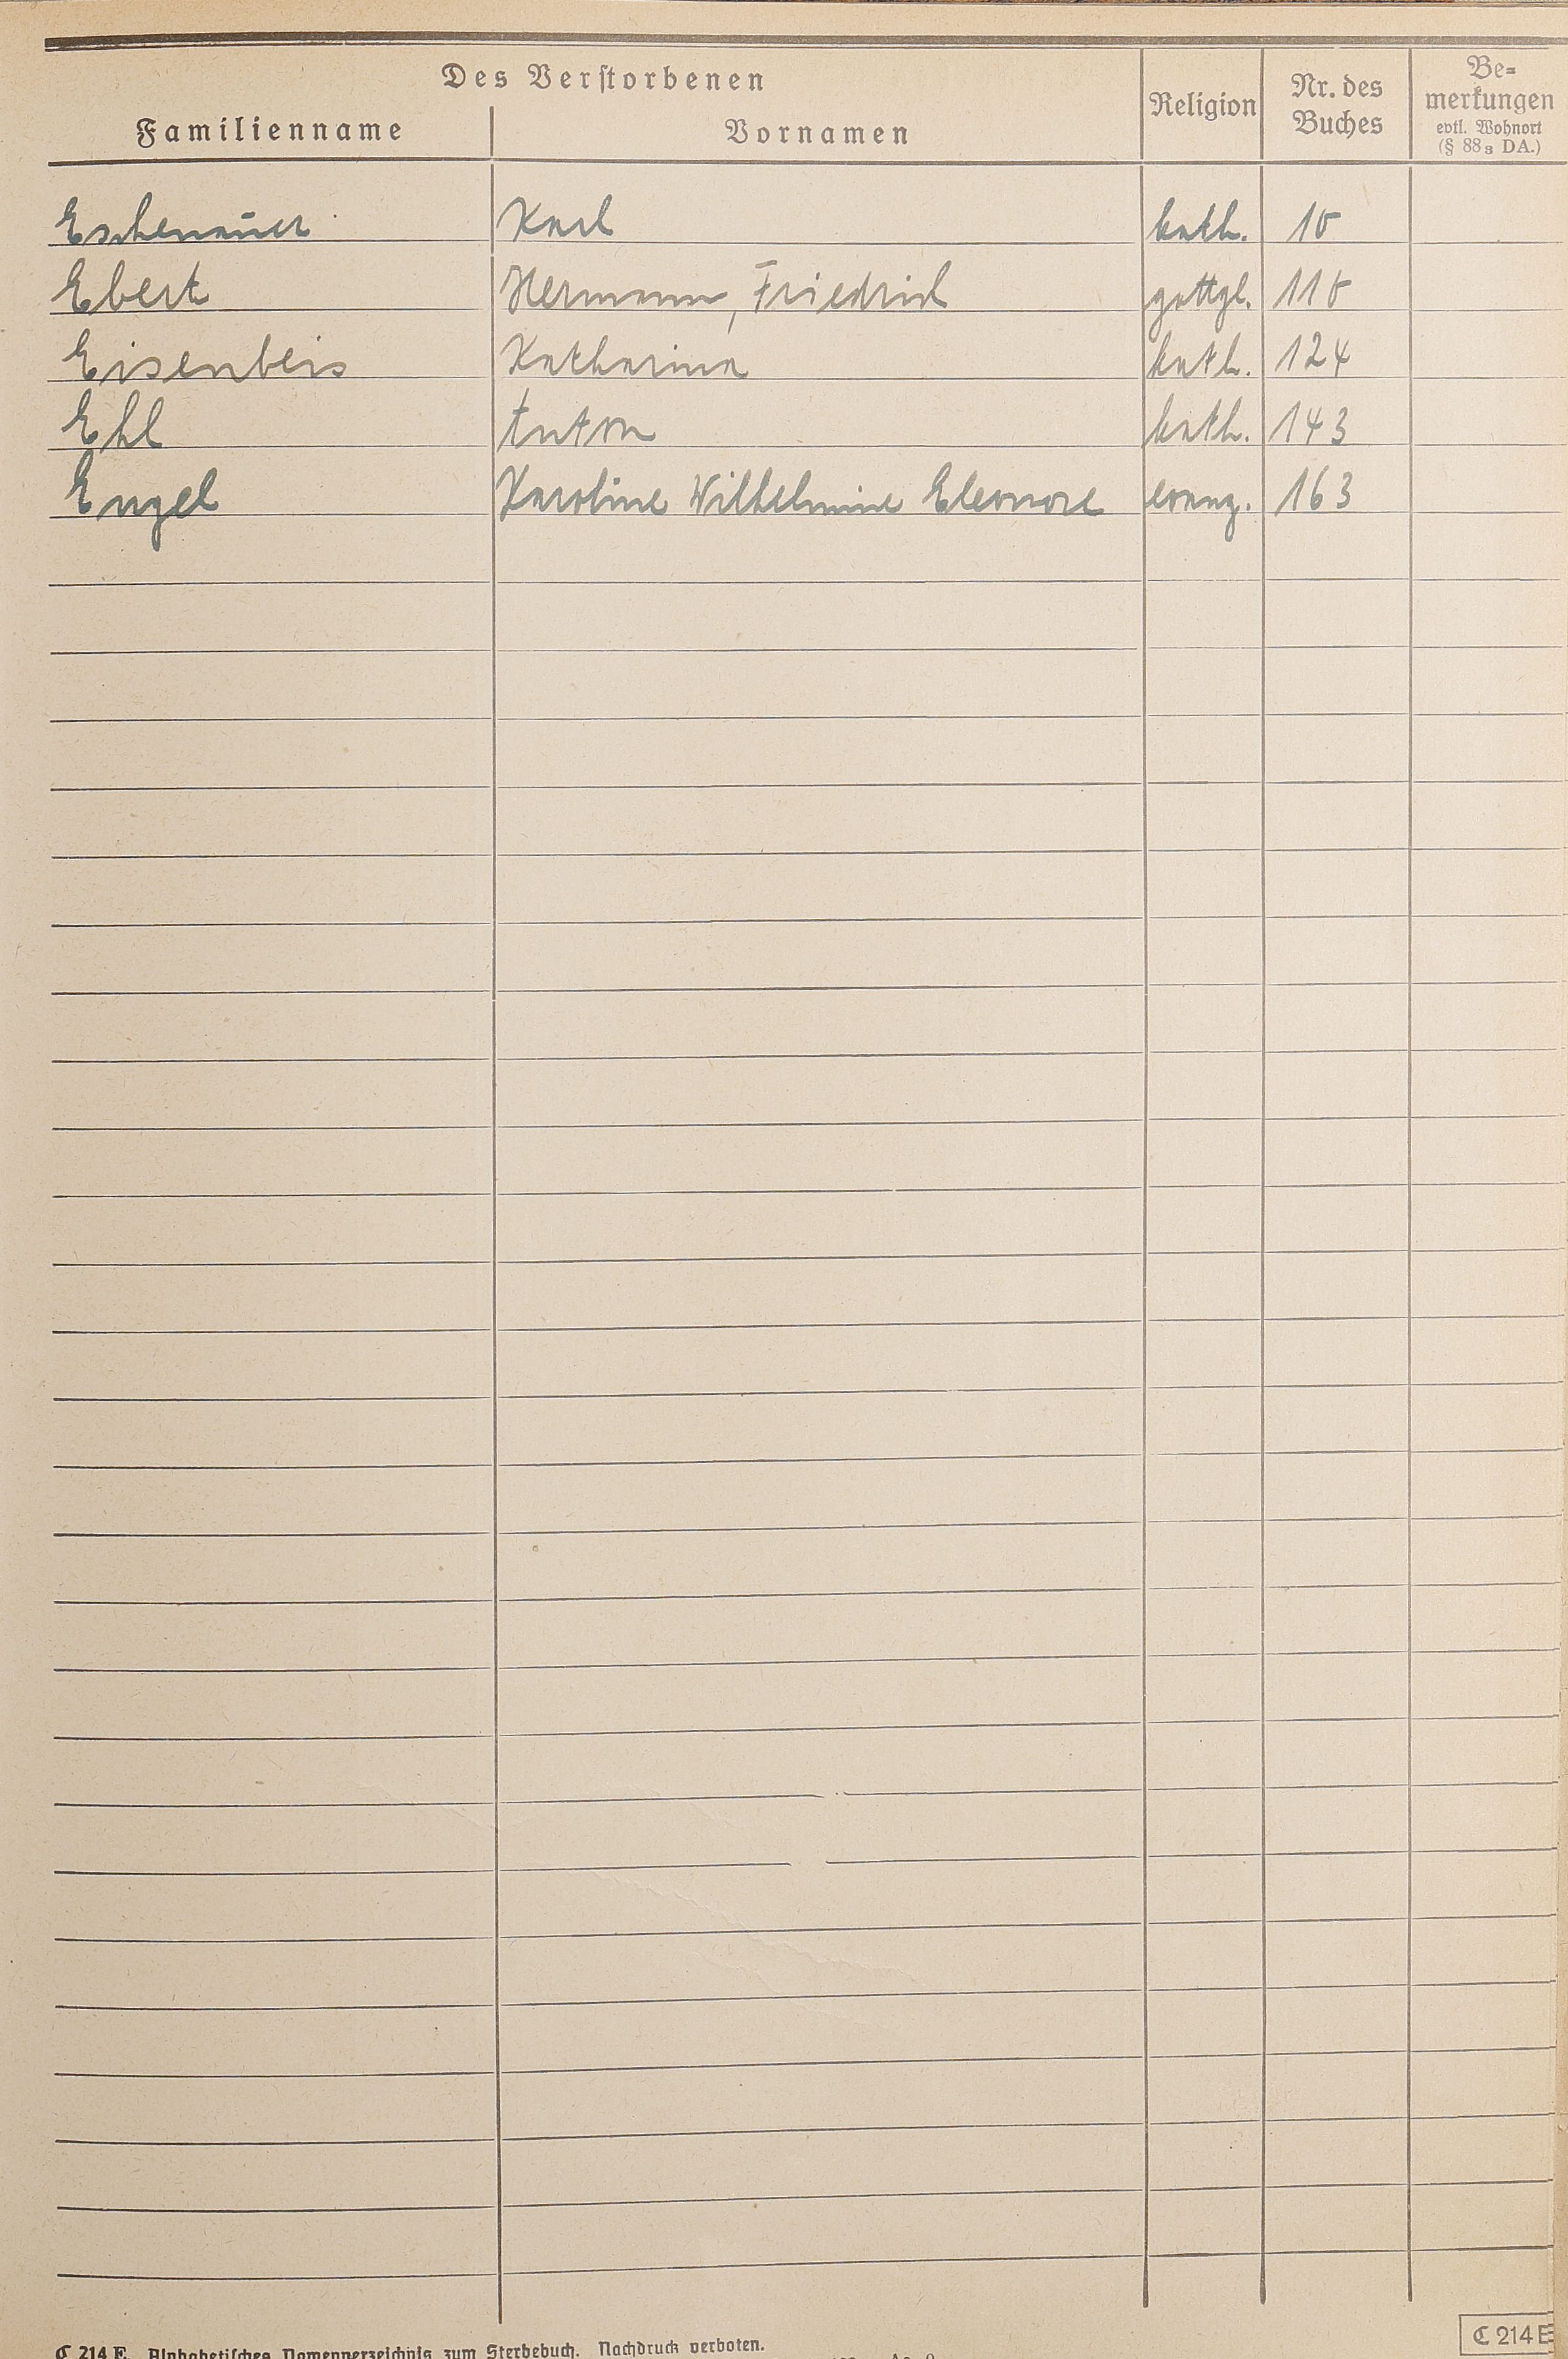 Des Verstorbenen
Familienname Vornamen Religion Nr. des Buches Be-
merkungen
evtl. Wohnort
(§ 88 3 DA.)
Eschenauer Karl kath. 10
Ebert Hermann, Friedrich gottgl. 110
Eisenbeis Katharina kath. 124
Ehl Anton kath. 143
Engel Karoline Wilhelmine Eleonore evang. 163
C 214 E. Alphabetisches Namenverzeichnis zum Sterbebuch. Nachdruck verboten.
C 214 E